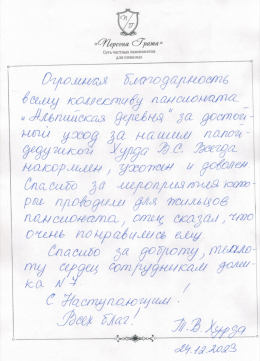 «ПорталГрата»
Сеть частных пансионатов
для пожилых
Огромная благодарность
всему коллективу пансионата
"Альпийская деревня" за достой-
ный уход за нашим папой-
дедушкой Хурда В С. Всегда
накормлен, ухожен и доволен
Спасибо за мероприятия кото-
рые проводим для жильцов
пансионата, отец сказал, что
очень понравились ему.
Спасибо за доброту, тепло-
ту сердец сотрудникам доми-
ка N 7.
С Наступающим!
Всех благ!
Т.В. Хурда
24.12.2023